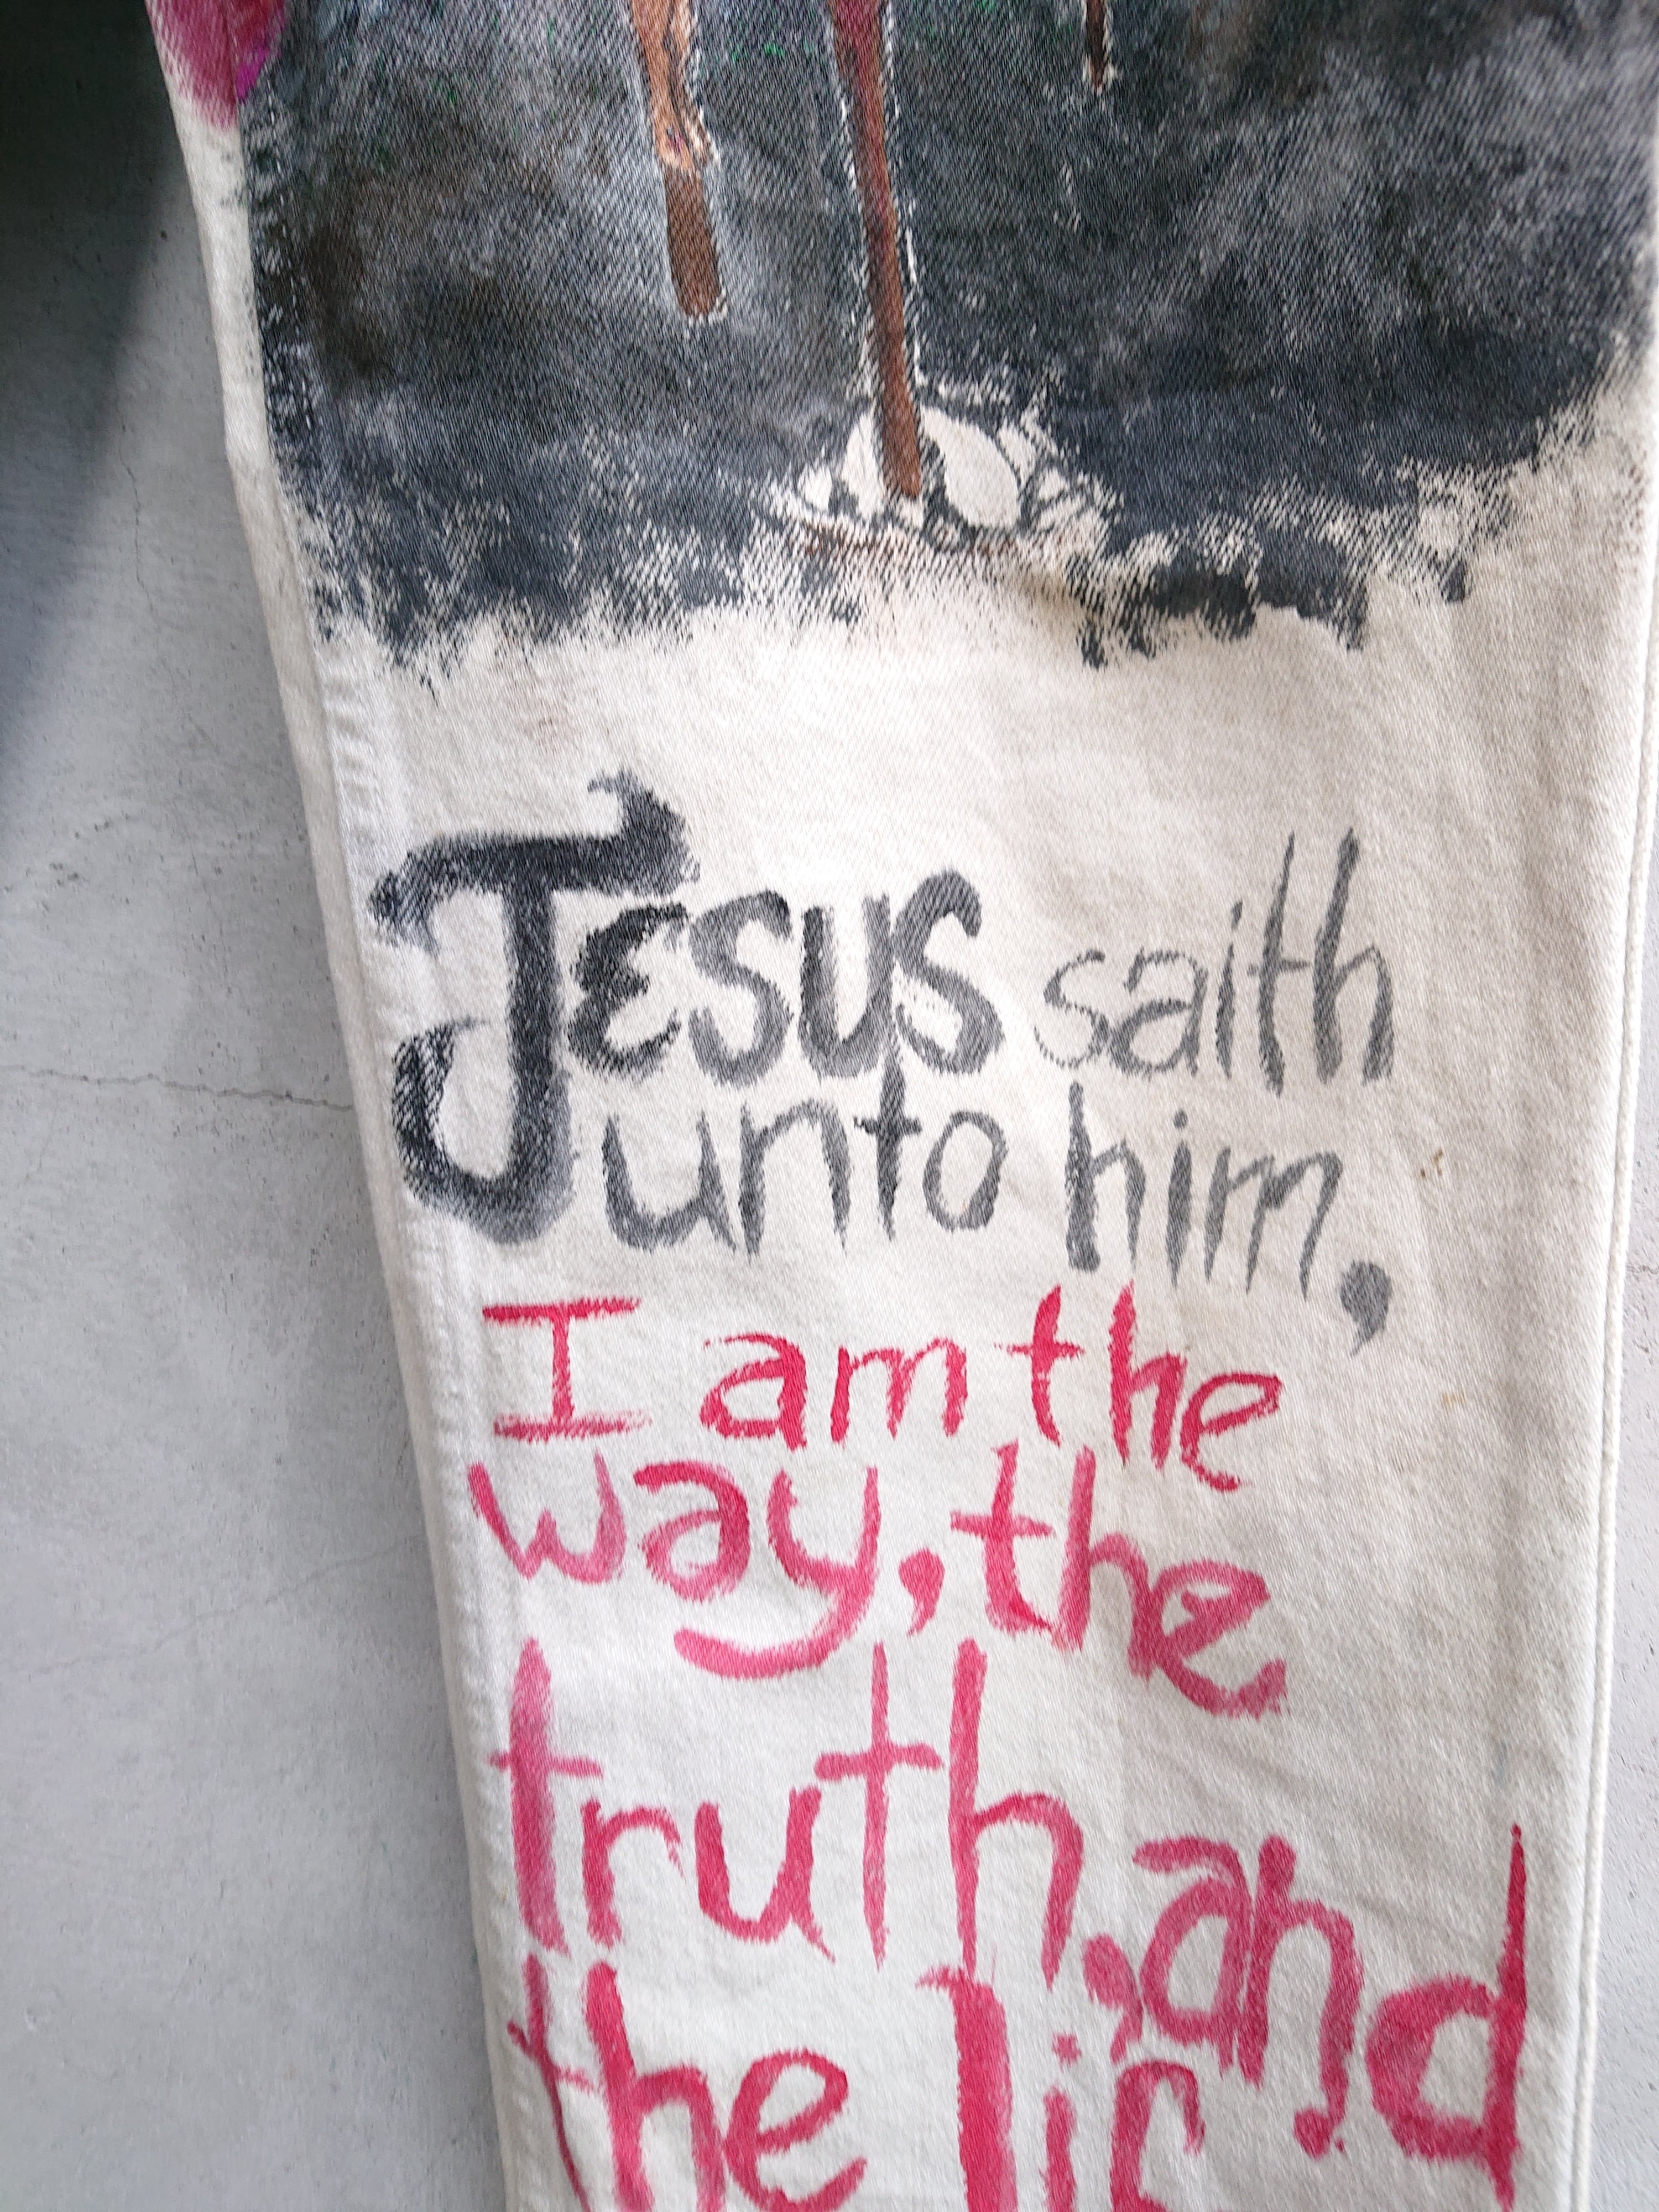 Jesus saith
unto him,
I am the
way, the
truth, and
the